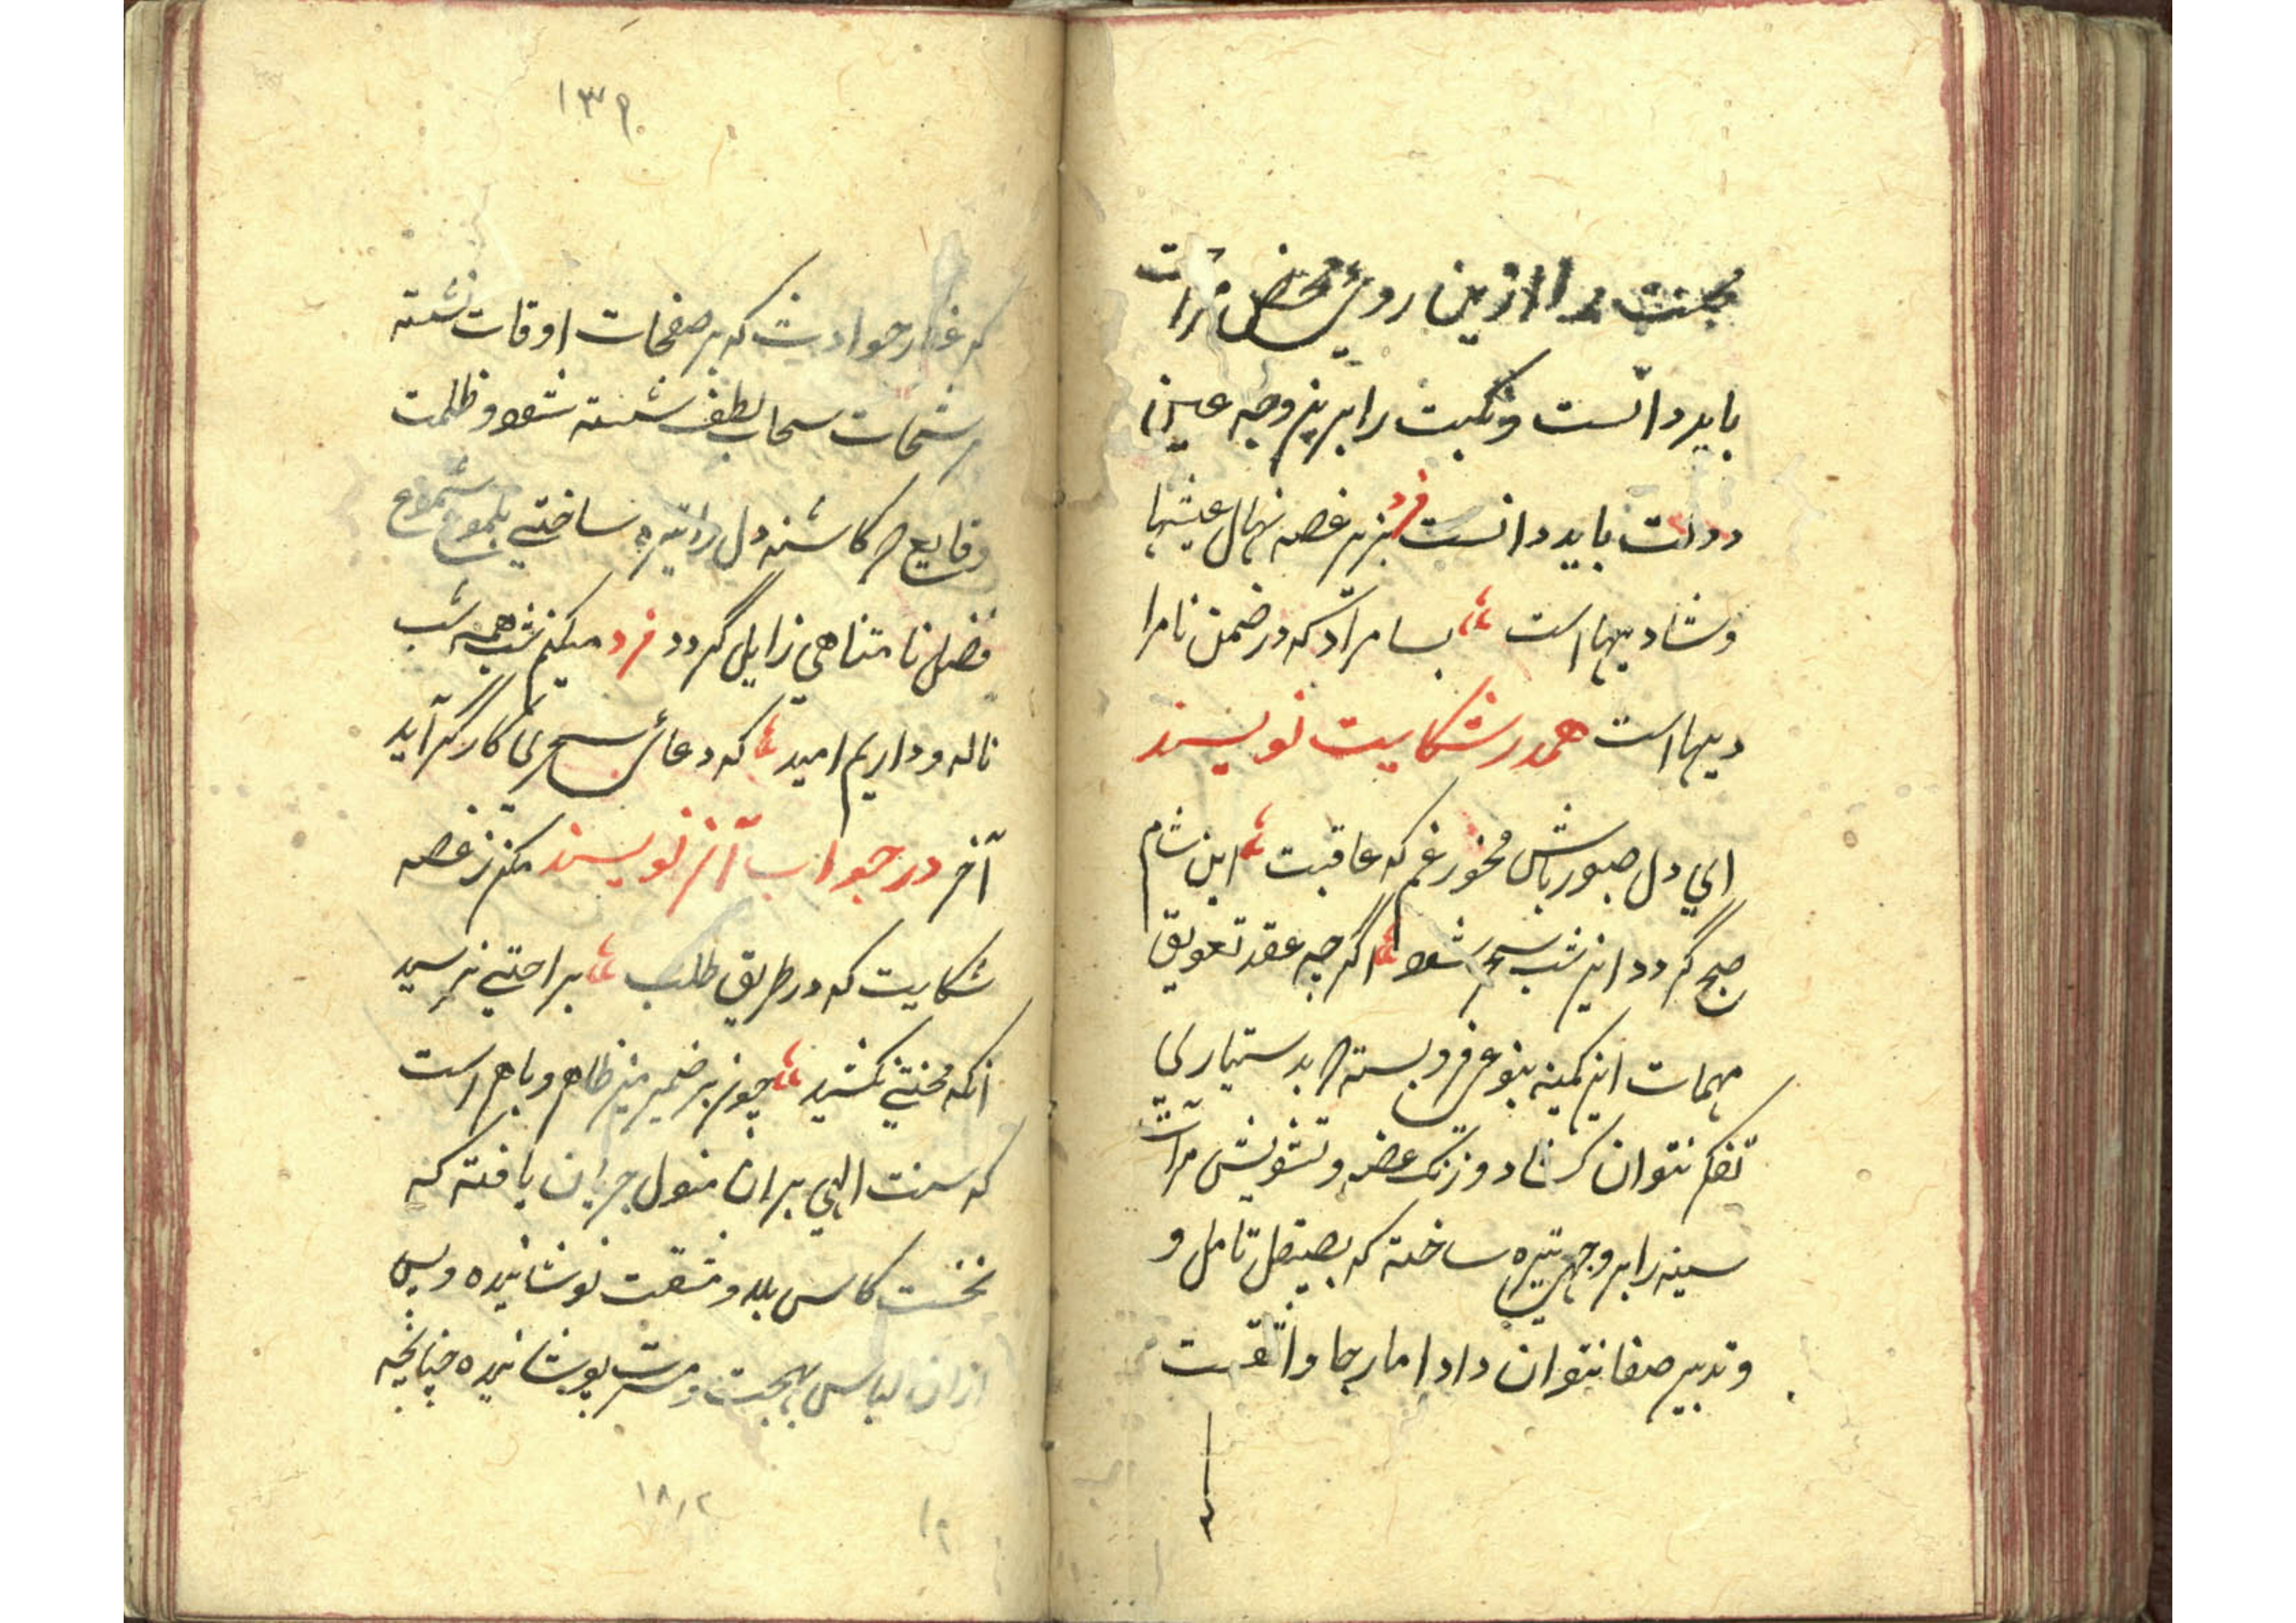 محنت را ازین روی محض مرات
باید دانست و نکبت را برین وجه عین
دولت باید دانست فرد بزیر غصه نهال عیشها
و شادیهاست بسا مراد که در ضمن نامرا
دیهاست هم در شکایت نویسند
ای دل صبور باش مخور غم که عاقبت این شام
صبح گردد این شب سحر شود اگرچه عقد تعویق
مهمات این کمینه بنوعی فروبسته که بدستیاری
تفکر نتوان کشاد و زنک غصه و تشویش مرآت
سینه را بروجهی تیره ساخته که بصیقل تامل و
و تدبیر صفا نتوان داد اما رجا واثقست
۱۳۹
که غبار حوادث که بر صفحات اوقات نشسته
رشحات سحاب لطف شسته شود و ظلمت
وقایع که کاشنه دل را تیره ساختی بلموع شموع
فضل نامتناهی زایل گردد فرد میکنم شب همه شب
ناله و داریم امید که دعای سحری کارگر آید
آخر در جواب آن نویسند مکن ز غصه
شکایت که در طریق طلب براحتی نرسید
انکه محنتی نکشید چون بر ضمیر منیر ظاهر و باهر است
که سنت الهی بران منوال جریان یافته که
نخست کاس بلا و مشقت نوشانیده و پس
ازان لباس بهجت و مسرت پوشانیده چنانچه